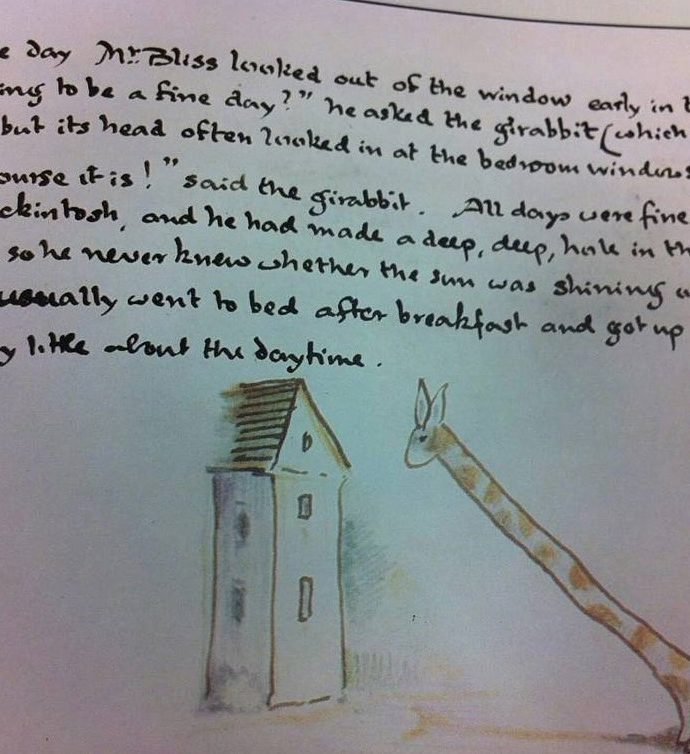 e day Mr. Bliss looked out of the window early in t
ing to be a fine day?" he asked the girabbit (which
but its head often looked in at the bedroom windows
ourse it is!" said the girabbit. All days were fine
ckintosh, and he had made a deep, deep, hole in th
so he never knew whether the sun was shining o
usually went to bed after breakfast and got up
y little about the daytime.